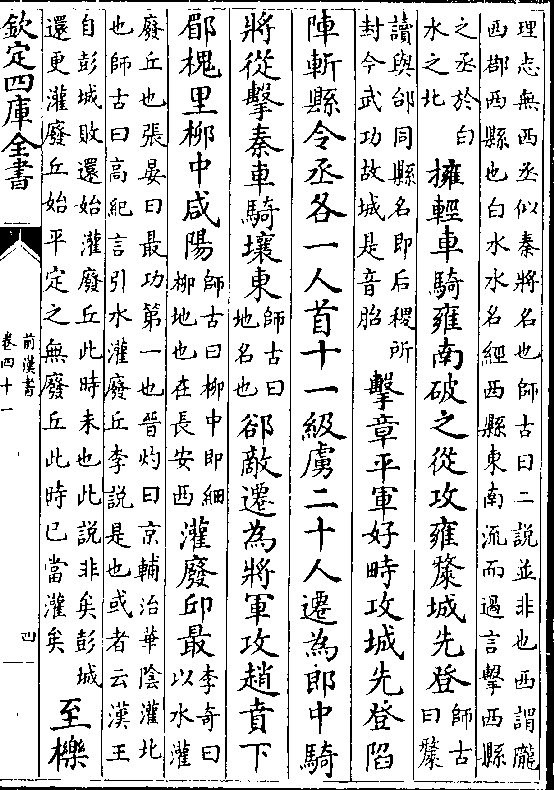 理志無西丞似秦將名也師古曰二說並非也西謂隴
西郡西縣也白水水名經西縣東南流而過言擊西縣
之丞於白
水之北
擁輕車騎雍南破之從攻雍斄城先登
師古
曰斄
讀與邰同縣名即后稷所
封今武功故城是音胎
擊章平軍好畤攻城先登陷
陣斬縣令丞各一人首十一級虜二十人遷為郎中騎
將從擊秦車騎壤東
師古曰
地名也
郤敵遷為將軍攻趙賁下
郿槐里柳中咸陽
師古曰柳中即細
柳地也在長安西
灌廢邱最
李奇曰
以水灌
廢丘也張晏曰最功第一也晉灼曰京輔治華陰灌北
也師古曰高紀言引水灌廢丘李說是也或者云漢王
自彭城敗還始灌廢丘此時未也此說非矣彭城
還更灌廢丘始平定之無廢丘此時已當灌矣
至櫟
欽定四庫全書
前漢書
卷四十一
四